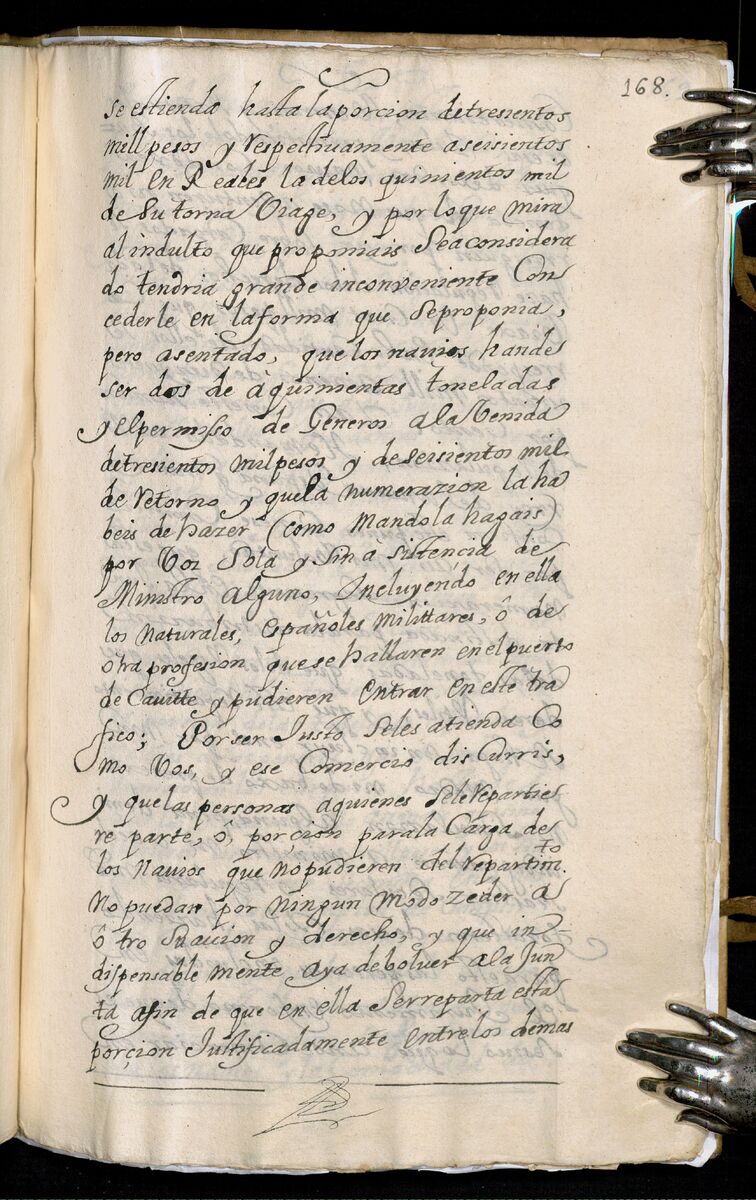 168.
se estienda hasta la porcion de tresientos
mill pesos y respectiuamente a seisientos
mil en Reales la de los quinientos mil
de su torna Viage, y por lo que mira
al indulto que proponiais se a considera
do tendria grande inconveniente Con
cederle en la forma que se proponia,
pero asentado, que los navios han de
ser dos de à quinientas toneladas
y el permisso de Generos a la Venida
de tresientos mil pesos y de seisientos mil
de retorno y que la numerazion la ha
beis de hazer (como mando la hagais)
por Vos Sola y sin a sistencia de
Ministro alguno, Incluyendo en ella
los naturales, españoles milittares, ô de
otra profesion que se hallaren en el puerto
de Cavitte y pudieren entrar en este tra
fico; Por ser Justo se les atienda Co
mo Vos, y ese Comercio discurris,
y que las personas a quienes se le repartie
re parte, ô, porçion para la Carga de
los navios que no pudieren del repartim.to
no puedan por ningun modo zeder a
ôtro su accion y derecho, y que in=
dispensable mente aya de bolver a la Jun
ta afin de que en ella se rreparta esta
porçion Justificadamente entre los demas